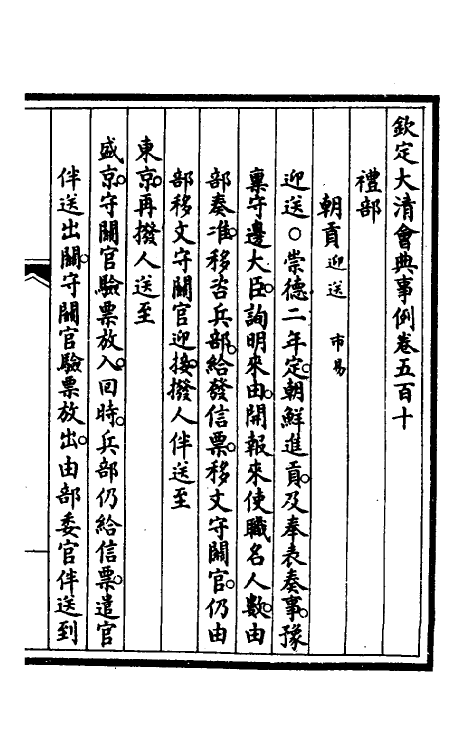 欽定大清會典事例卷五百十
禮部
朝貢迎送 市易
迎送○崇德二年定。朝鮮進貢。及奉表奏事。豫
稟守邊大臣。詢明來由。開報來使職名人數。由
部奏准。移咨兵部。給發信票。移文守關官。仍由
部移文守關官迎接。撥人伴送至
東京。再撥人送至
盛京。守關官驗票放入。回時。兵部仍給信票。遣官
伴送出關。守關官驗票放出。由部委官伴送到